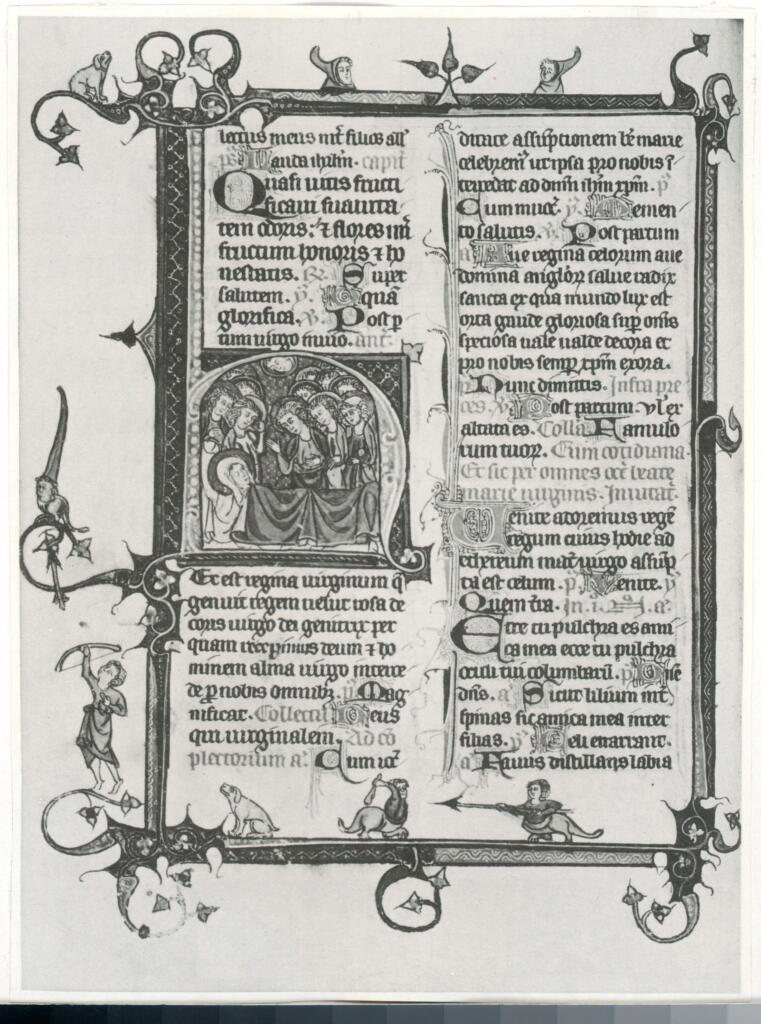 lectus meus int̄ filios all̄
ps̄ Lauda ih̄rlm̄. capit̄
Quasi uitis fructi
ficaui suauita
tem odoris: ⁊ flores mī
fructum honoris ⁊ ho
nestatis. R̄. Super
salutem. v̄.
glorifica. v̄. Post p
tum uirgo inuio. ant̄.
Hec est regina uirginum q̄
genuit regem uelut rosa de
cora uirgo dei genitrix per
quam recepimus deum ⁊ ho
minem alma uirgo interce
de ꝓ nobis omnibꝫ. p̄ Mag
nificat. Collecta Deus
qui uirginalem. Ad cō
plectorium a. Cum ioc̄
ditate assūptionem bē marie
celebrem ut ipsa pro nobis ī
tercedat ad dn̄m ih̄m xp̄m. p̄
Cum inuoc̄. v̄. Memen
to salutis. v̄. Post partum
a Aue regina celorum aue
domina angloꝝ salue radix
sancta ex qua mundo lux est
orta gaude gloriosa sup̄ om̄s
speciosa uale ualde decora et
pro nobis semꝑ xp̄m exora.
p̄ Nunc dimittis. Infra pre
ces. v̄. Post partum. ul̄ ex
altata es. Coll̄a Famulo
rum tuoꝝ. Cum cotidiana
Et sic per omnes oct̄ beate
marie uirginis. Inuitat̄.
Uenite adoremus regē
regum cuius hodie ad
ethereum mat̄ uirgo assūp
ta est celum. p̄. Venite. v̄
Quem t̄ra. In. i. a.
Ecce tu pulchra es ami
ca mea ecce tu pulchra
oculi tui columbarū. p̄ Dn̄e
dn̄s. a Sicut lilium int̄
spinas sic amica mea inter
filias. p̄ Celi enarrant.
a Fauus distillans labia